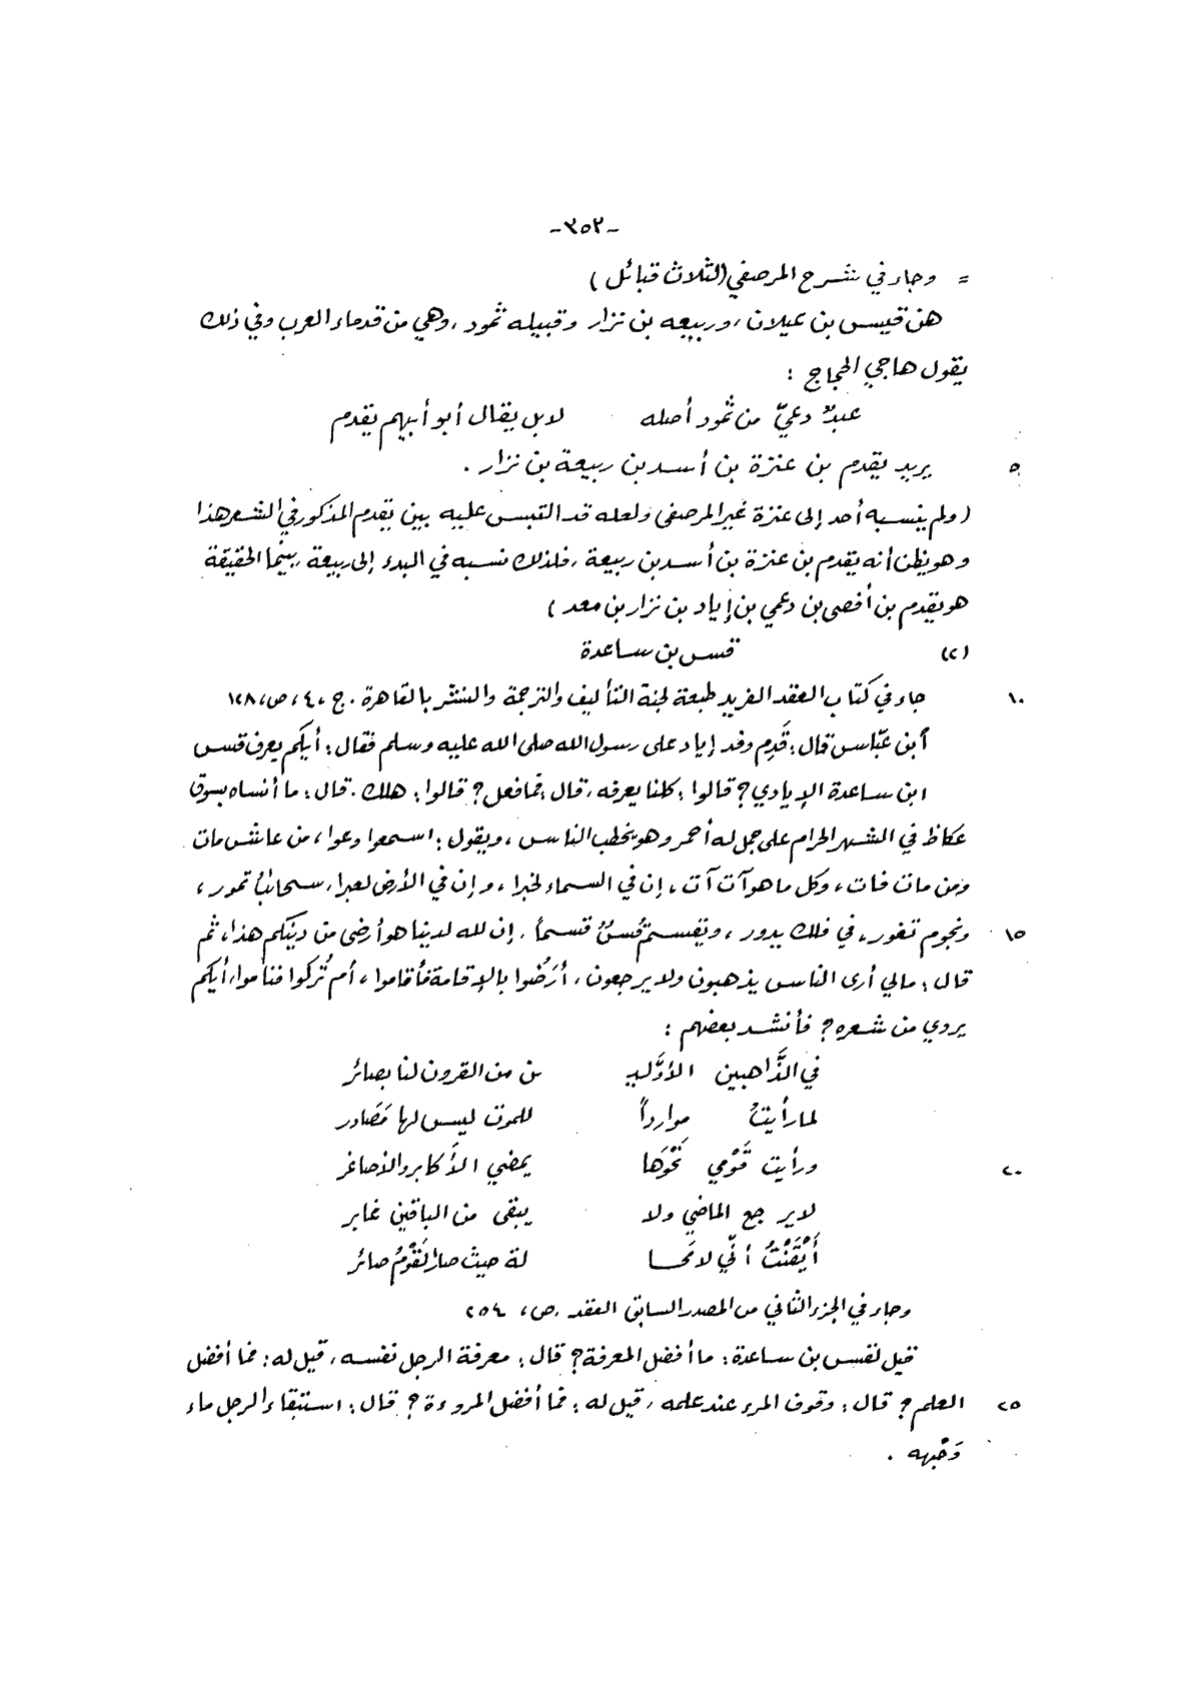 -٣٥٢-
= وجاء في شرح المرصفي (الثلاث قبائل)
هن قيس بن عيلان، وربيعه بن نزار وقبيله ثمود، وهي من قدماء العرب وفي ذلك
يقول هاجي الحجاج :
عبدٌ دعيّ من ثمود أصله لا بل يقال أبو أبيهم يقدم
٥ يريد يقدم بن عنزة بن أسد بن ربيعة بن نزار .
(ولم ينسبه أحد إلى عنزة غير المرصفى ولعله قد التبس عليه بين يقدم المذكور في الشعر هذا
وهو يظن أنه يقدم بن عنزة بن أسد بن ربيعة، فلذلك نسبه في البدء إلى ربيعة بينما الحقيقة
هو يقدم بن أفصى بن دعمي بن إياد بن نزار بن معد)
(٢) قس بن ساعدة
١٠ جاء في كتاب العقد الفريد طبعة لجنة التأليف والترجمة والنشر بالقاهرة. ج ،٤، ص، ١٢٨
أبن عبّاس قال: قَدِم وفد إياد على رسول الله صلى الله عليه وسلم فقال: أيكم يعرف قس
ابن ساعدة الإيادي؟ قالوا: كلنا يعرفه، قال: فما فعل؟ قالوا: هلك. قال: ما أنساه بسوق
عكاظ في الشهر الحرام على جمل له أحمر وهو يخطب الناس، ويقول: اسمعوا وعوا، من عاش مات
ومن مات فات، وكل ما هو آت آت، إن في السماء لخبرا، وإن في الأرض لعبرا، سحائبُ تمور،
١٥ ونجوم تغور، في فلك يدور، ويقسم قُسٌ قسماً، إن لله لدينا هو أرضى من دينكم هذا، ثم
قال: مالي أرى الناس يذهبون ولا يرجعون، أرَضُوا بالإقامة فأقاموا، أم تُركوا فناموا، أيكم
يروي من شعره؟ فأنشد بعضهم :
في الذَّاهبين الأوَّليـ ـن من القرون لنا بصائر
لما رأيتُ موارداً للموت ليس لها مَصَادر
٢٠ ورأيت قَوْمي نَحْوَها يمضي الأَكابر والأصاغر
لا ير جع الماضي ولا يبقى من الباقين غابر
أَيْقَنْتُ أنّي لا مَحـا لة حيث صار القَوْمُ صائر
وجاء في الجزء الثاني من المصدر السابق العقد ،ص، ٢٥٤
قيل لقس بن ساعدة: ما أفضل المعرفة؟ قال: معرفة الرجل نفسه، قيل له: فما أفضل
٢٥ العلم؟ قال: وقوف المرء عند علمه، قيل له: فما أفضل المروءة؟ قال: استبقاء الرجل ماء
وَجْهِه .